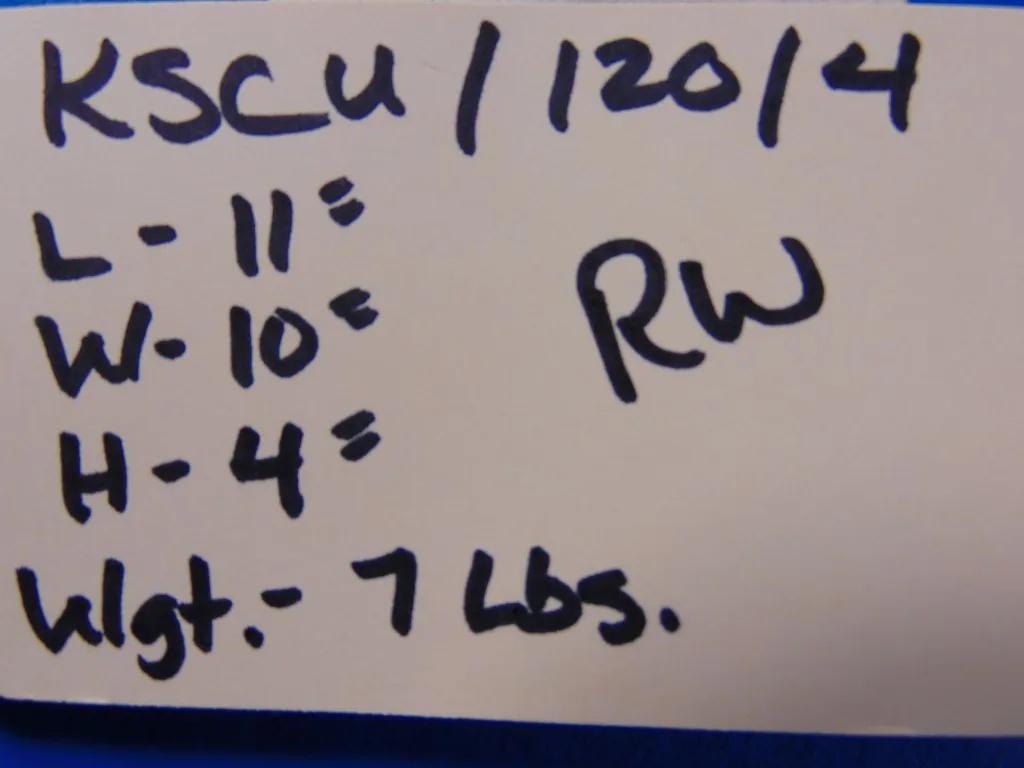 KSCU / 120 / 4
L - 11"
RW
W - 10"
H - 4"
Wgt. - 7 Lbs.